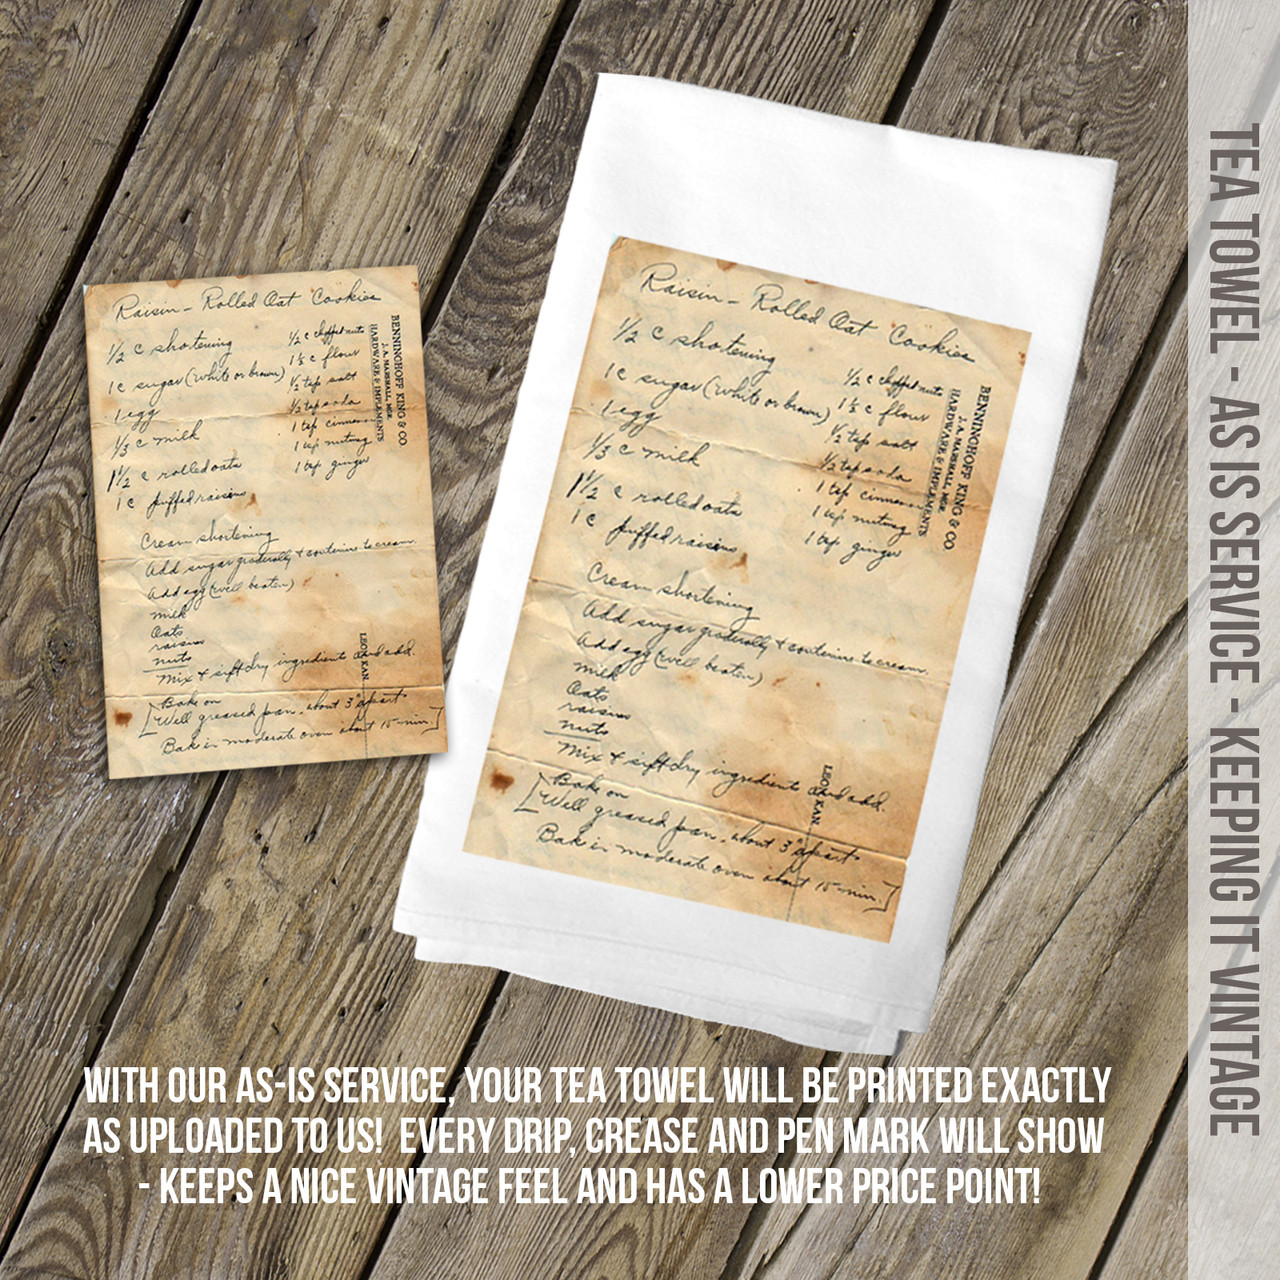 Raisin - Rolled Oat Cookies
1/2 c shotening
1 c sugar (white or brown)
1 egg
1/3 c milk
1 1/2 c rolled oats
1 c puffed raisins
1/2 c chopped nuts
1 1/2 c flour
1/2 tsp salt
1/2 tsp soda
1 tsp cinnamon
1 tsp nutmeg
1 tsp ginger
BENNINGHOFF KING & CO
J. A. MARSHALL, MGR.
HARDWARE & IMPLEMENTS
Cream shortening
Add sugar gradually & continue to cream.
Add egg (well beaten)
milk
Oats
raisins
nuts
Mix & sift dry ingredients and add.
LEON, KAN.
[Bake on
Well greased pan, about 3" apart
Bake in moderate oven about 15 min.]
Raisin - Rolled Oat Cookies
1/2 c shotening
1 c sugar (white or brown)
1 egg
1/3 c milk
1 1/2 c rolled oats
1 c puffed raisins
1/2 c chopped nuts
1 1/2 c flour
1/2 tsp salt
1/2 tsp soda
1 tsp cinnamon
1 tsp nutmeg
1 tsp ginger
BENNINGHOFF KING & CO
J. A. MARSHALL, MGR.
HARDWARE & IMPLEMENTS
Cream shortening
Add sugar gradually & continue to cream.
Add egg (well beaten)
milk
Oats
raisins
nuts
Mix & sift dry ingredients and add.
LEON, KAN.
[Bake on
Well greased pan, about 3" apart
Bake in moderate oven about 15 min.]
TEA TOWEL - AS IS SERVICE - KEEPING IT VINTAGE
WITH OUR AS-IS SERVICE, YOUR TEA TOWEL WILL BE PRINTED EXACTLY
AS UPLOADED TO US! EVERY DRIP, CREASE AND PEN MARK WILL SHOW
- KEEPS A NICE VINTAGE FEEL AND HAS A LOWER PRICE POINT!